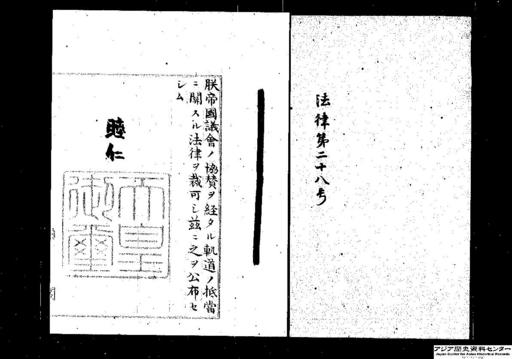 法律第二十八号
朕帝國議會ノ協賛ヲ経タル軌道ノ抵當
ニ關スル法律ヲ裁可シ茲ニ之ヲ公布セ
シム
睦仁
天皇
御璽
アジア歴史資料センター
Japan Center for Asian Historical Records